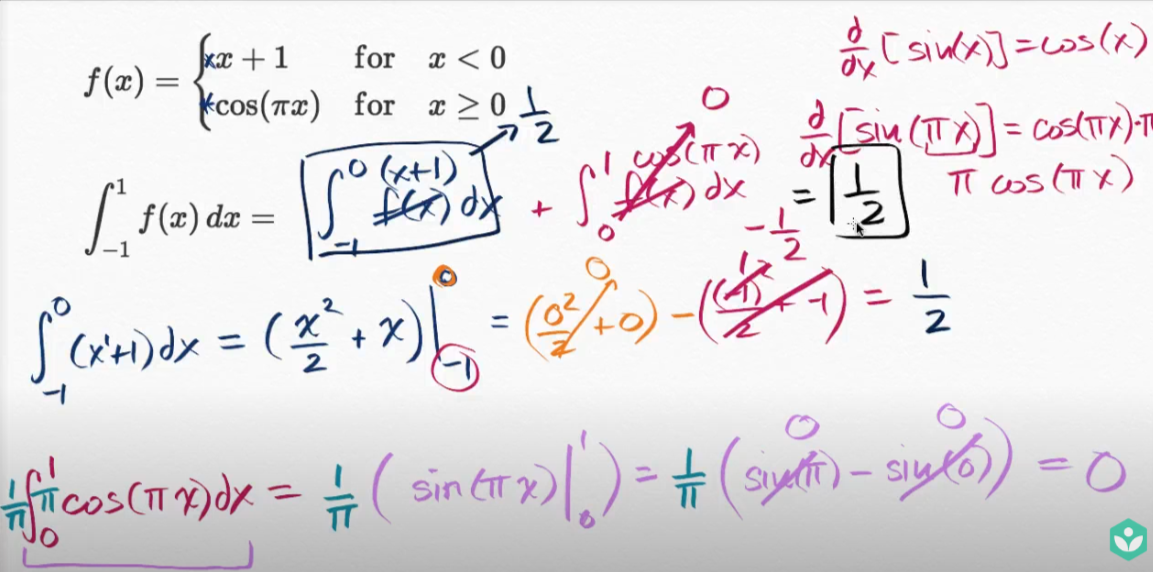 f(x) = { x + 1 for x < 0
cos(πx) for x ≥ 0
d/dx [sin(x)] = cos(x)
d/dx [sin(πx)] = cos(πx)·π
π cos(πx)
∫_{-1}^{1} f(x) dx = ∫_{-1}^{0} (x+1) f(x) dx → 1/2 + ∫_{0}^{1} cos(πx) f(x) dx → 0 = 1/2
∫_{-1}^{0} (x¹+1) dx = (x²/2 + x)|_{-1}^{0} = (0²/2 + 0) → 0 - ((-1)²/2 + -1) -1/2 = 1/2
1/π ∫_{0}^{1} π cos(πx) dx = 1/π ( sin(πx)|_{0}^{1} ) = 1/π (sin(π) 0 - sin(0) 0) = 0